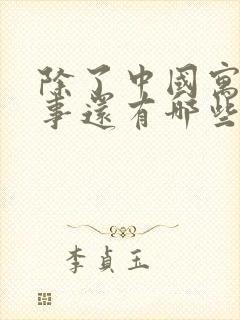 除了中國寓
事還有哪些
李貞玉